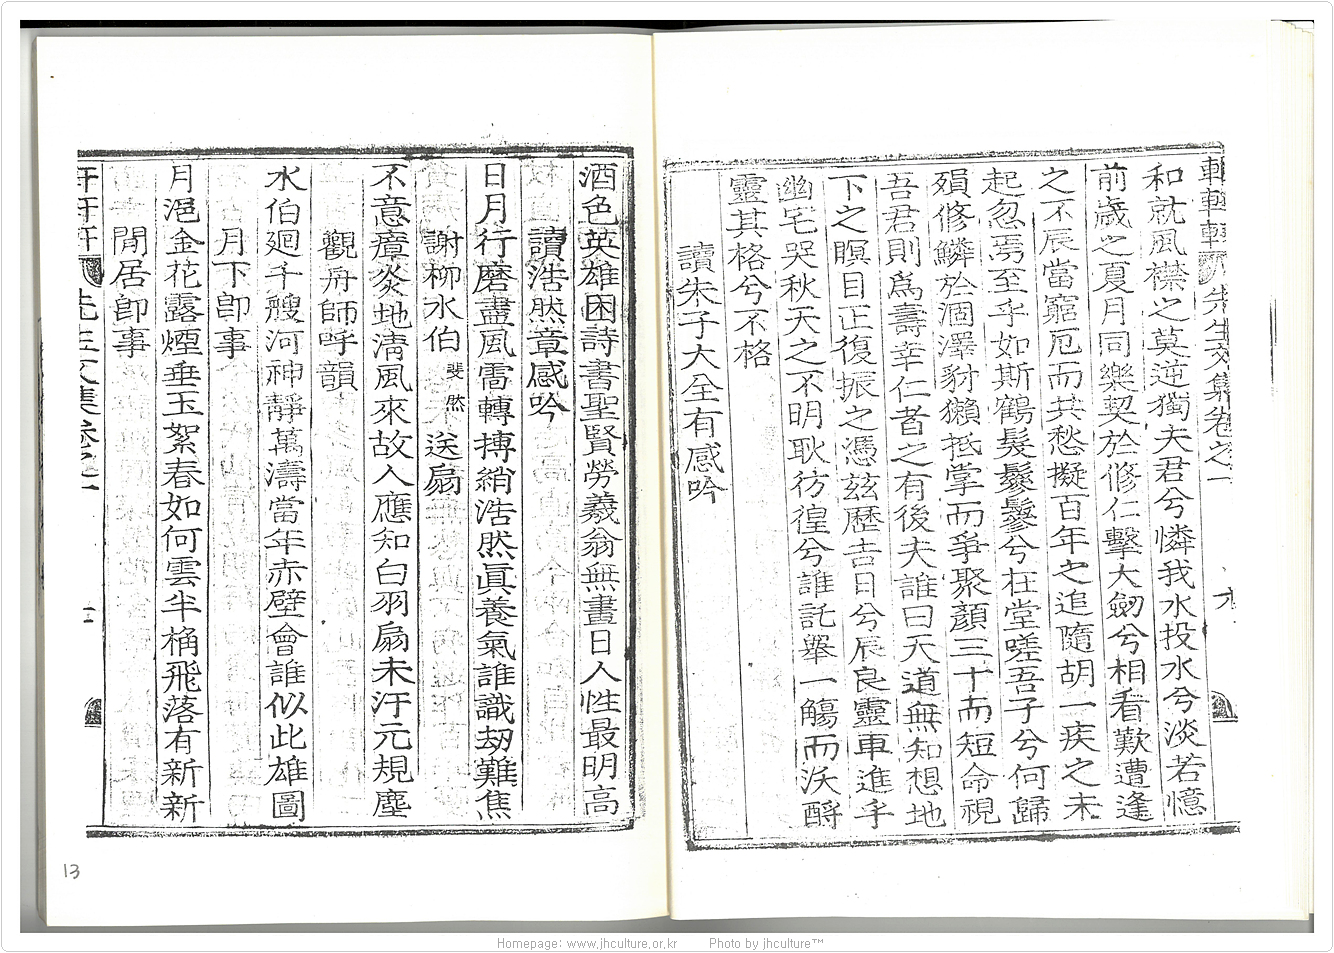 軒軒軒先生文集卷之一
和就風襟之莫逆獨夫君兮憐我水投水兮淡若憶
前歲之夏月同樂契於修仁擊大劒兮相看歎遭逢
之不辰當窮厄而其愁擬百年之追隨胡一疾之未
起忽焉至乎如斯鶴髮鬖鬖兮在堂嗟吾子兮何歸
殞修鱗於涸澤豺獺抵掌而爭聚顏三十而短命視
吾君則爲壽幸仁者之有後夫誰曰天道無知想地
下之瞑目正復振之憑玆歷吉日兮辰良靈車進乎
幽宅哭秋天之不明耿彷徨兮誰託舉一觴而沃酹
靈其格兮不格
讀朱子大全有感吟
酒色英雄困詩書聖賢勞羲翁無畫日人性最明高
讀浩然章感吟
日月行磨盡風雷轉搏綃浩然眞養氣誰識刼難焦
謝柳水伯 斐然 送扇
不意瘴炎地淸風來故人應知白羽扇未汙元規塵
觀舟師呼韻
水伯廻千艘河神靜萬濤當年赤壁會誰似此雄圖
月下卽事
月浥金花露煙垂玉絮春如何雲半桷飛落有新新
閒居卽事
軒軒軒先生文集卷之一
13
Homepage: www.jhculture.or.kr Photo by jhculture™